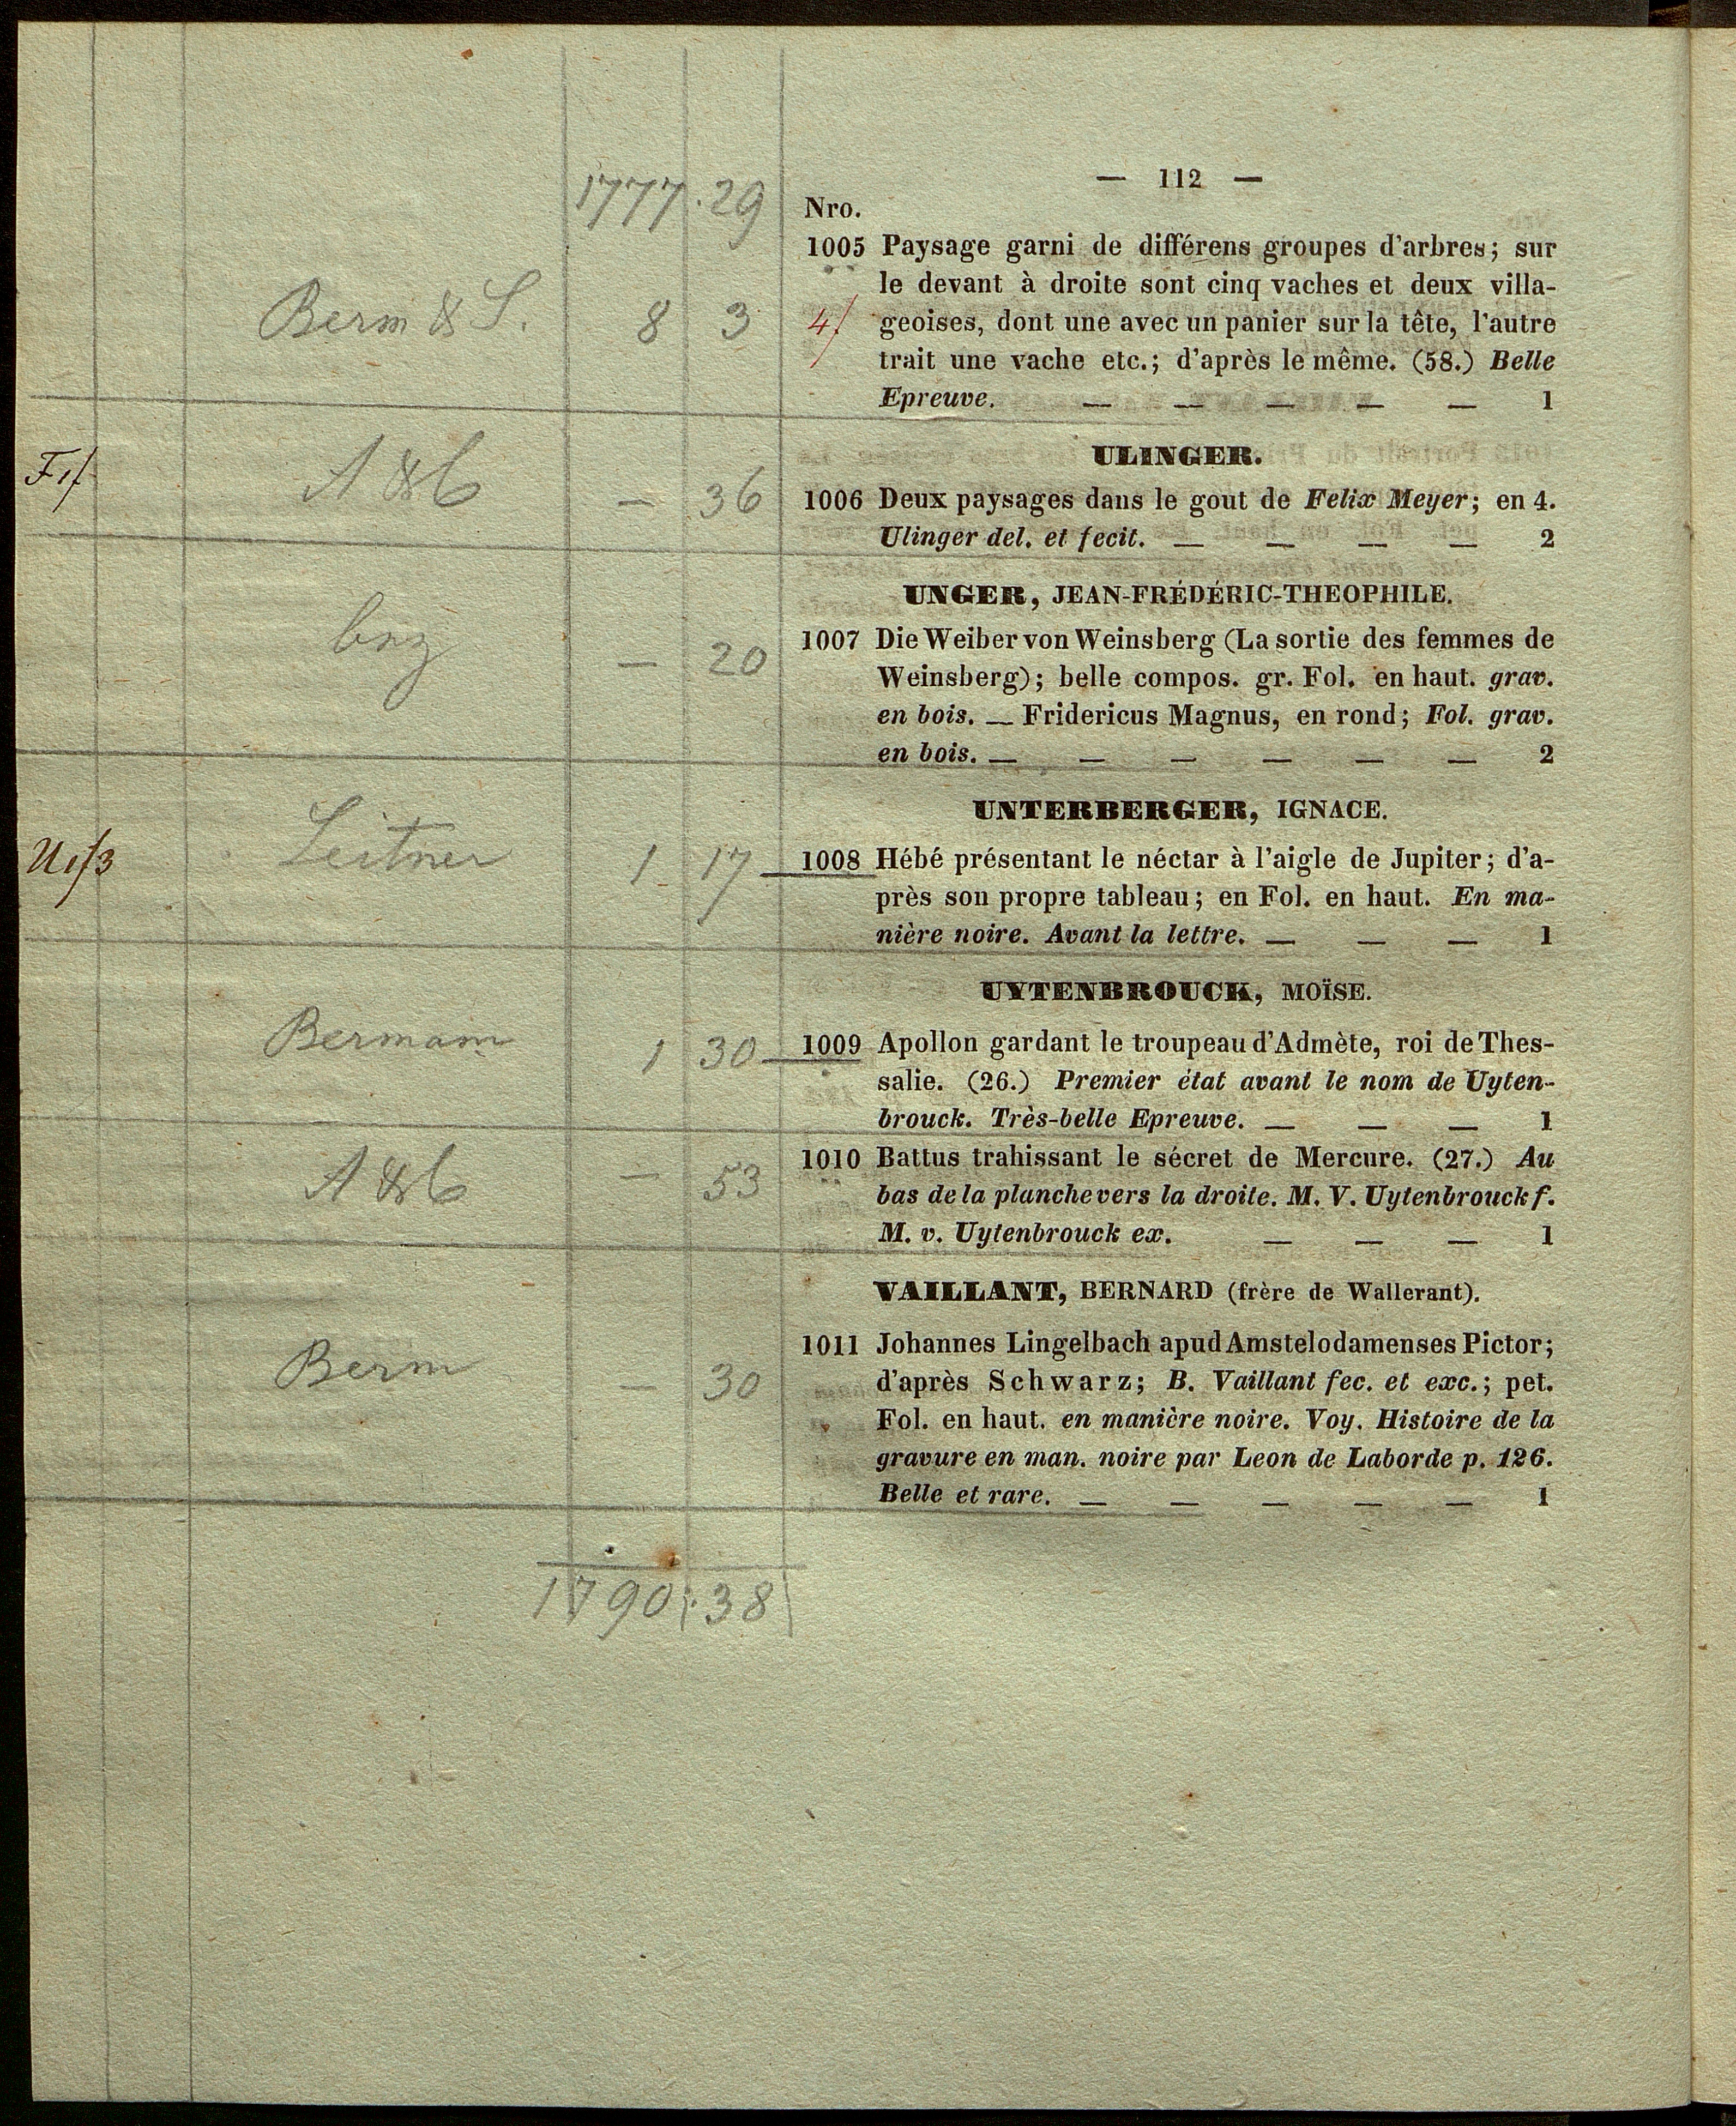 — 112 —
1777 . 29
Nro.
1005 Paysage garni de différens groupes d'arbres; sur
le devant à droite sont cinq vaches et deux villa-
Berm & S. 8 3 4/ geoises, dont une avec un panier sur la tête, l'autre
trait une vache etc.; d'après le même. (58.) Belle
Epreuve. — — — — — 1
ULINGER.
F1/ A & C — 36 1006 Deux paysages dans le gout de Felix Meyer; en 4.
Ulinger del. et fecit. — — — — 2
UNGER, JEAN-FRÉDÉRIC-THEOPHILE.
— 20 1007 Die Weiber von Weinsberg (La sortie des femmes de
Weinsberg); belle compos. gr. Fol. en haut. grav.
en bois. — Fridericus Magnus, en rond; Fol. grav.
en bois. — — — — — — 2
UNTERBERGER, IGNACE.
Leitner 1 17 1008 Hébé présentant le néctar à l'aigle de Jupiter; d'a-
près son propre tableau; en Fol. en haut. En ma-
nière noire. Avant la lettre. — — — 1
UYTENBROUCK, MOÏSE.
Bermann 1 30 1009 Apollon gardant le troupeau d'Admète, roi de Thes-
salie. (26.) Premier état avant le nom de Uyten-
brouck. Très-belle Epreuve. — — — 1
A & C — 53 1010 Battus trahissant le sécret de Mercure. (27.) Au
bas de la planche vers la droite. M. V. Uytenbrouck f.
M. v. Uytenbrouck ex. — — — 1
VAILLANT, BERNARD (frère de Wallerant).
1011 Johannes Lingelbach apud Amstelodamenses Pictor;
Berm — 30 d'après Schwarz; B. Vaillant fec. et exc.; pet.
Fol. en haut. en manière noire. Voy. Histoire de la
gravure en man. noire par Leon de Laborde p. 126.
Belle et rare. — — — — — 1
1790 . 38